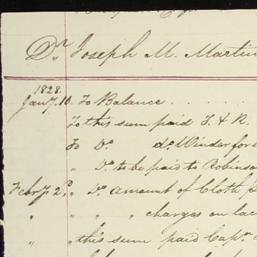 Dr Joseph M. Martin
1828
Jany. 10. To Balance
To this sum paid T. & N.
To Do do Windsor for
" Do to be paid to Robinson
Feby 2d " Do amount of Cloth
" " " " charges on
" " this sum paid Capn